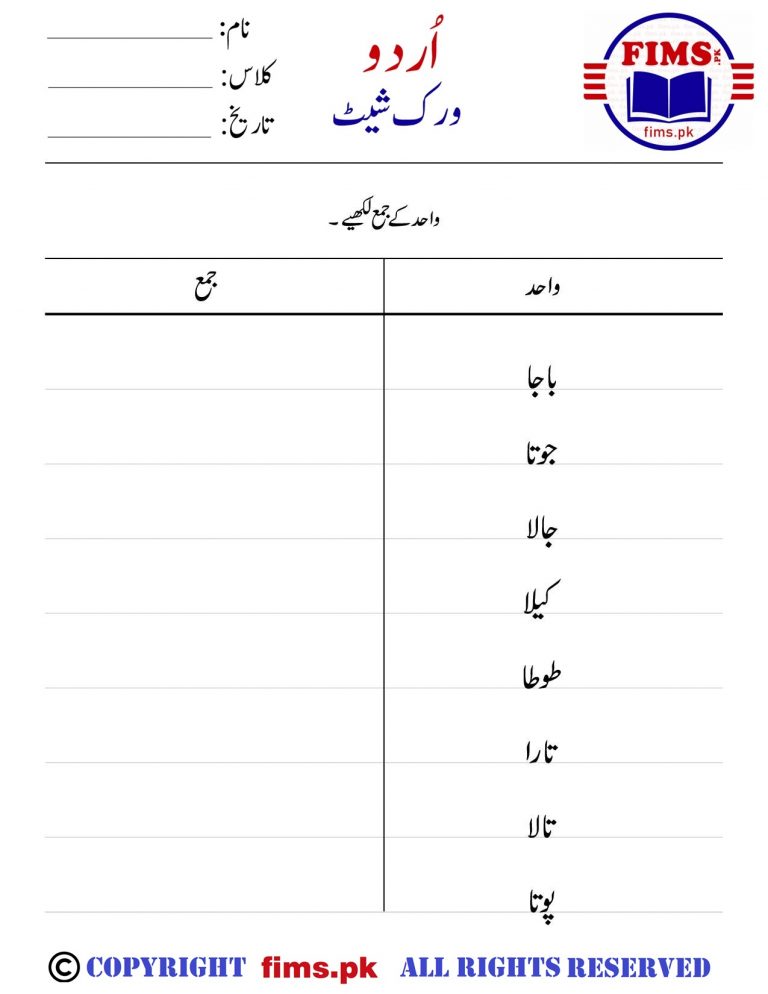 FIMS.PK
fims.pk
اُردو
ورک شیٹ
نام: ____________
کلاس: ____________
تاریخ: ____________
واحد کے جمع لکھیے ۔
واحد جمع
باجا
جوتا
جالا
کیلا
طوطا
تارا
تالا
پوتا
© COPYRIGHT fims.pk ALL RIGHTS RESERVED